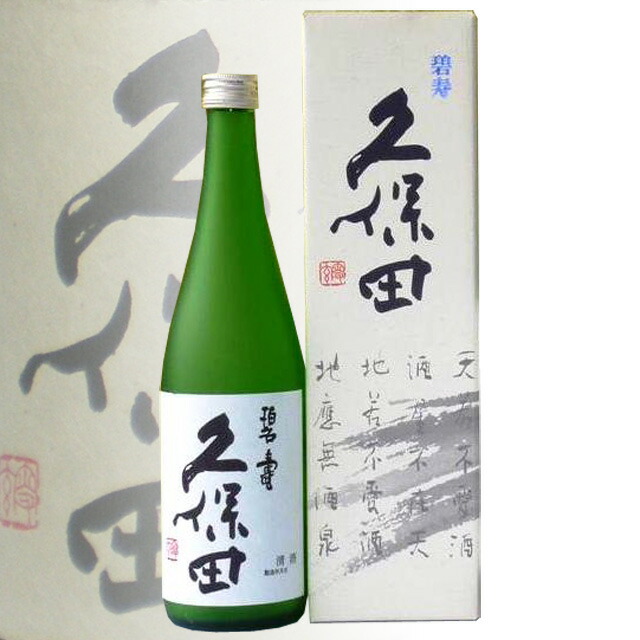 碧寿
久保田
天若不愛酒
酒星不在天
地若不愛酒
地應無酒泉
碧壽
久保田
清酒
久保田